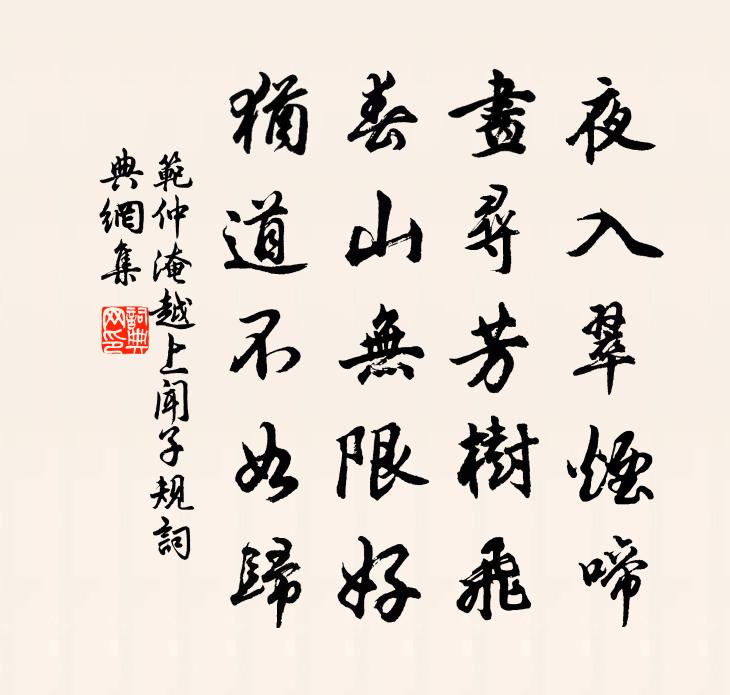 夜入翠煙啼
晝尋芳樹飛
春山無限好
猶道不如歸
範仲淹越上聞子規詞
典網集
詞典
网印